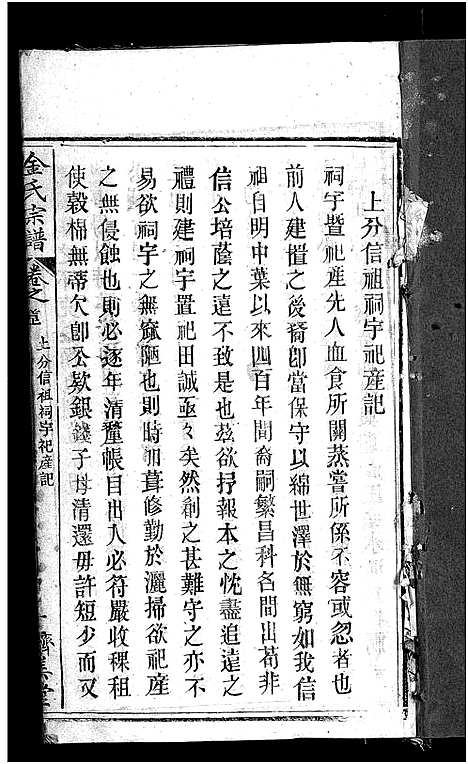 上分信祖祠宇祀產記
祠宇暨祀產先人血食所關蒸嘗所係不容或忽者也
前人建置之後裔卽當保守以綿世澤於無窮如我信
祖自明中葉以來四百年間裔嗣繁昌科名間出苟非
信公培蔭之遠不致是也茲欲抒報本之忱盡追遠之
禮則建祠宇置祀田誠亟々矣然創之甚難守之亦不
易欲祠宇之無窳陋也則時加葺修勤於灑掃欲祀產
之無侵蝕也則必逐年清釐帳目出入必符嚴收稞租
使穀棉無蒂欠卽公欵銀錢子母清還毋許短少而又
金氏宗譜
卷之首
上分信祖祠宇祀產記
一
濟美堂